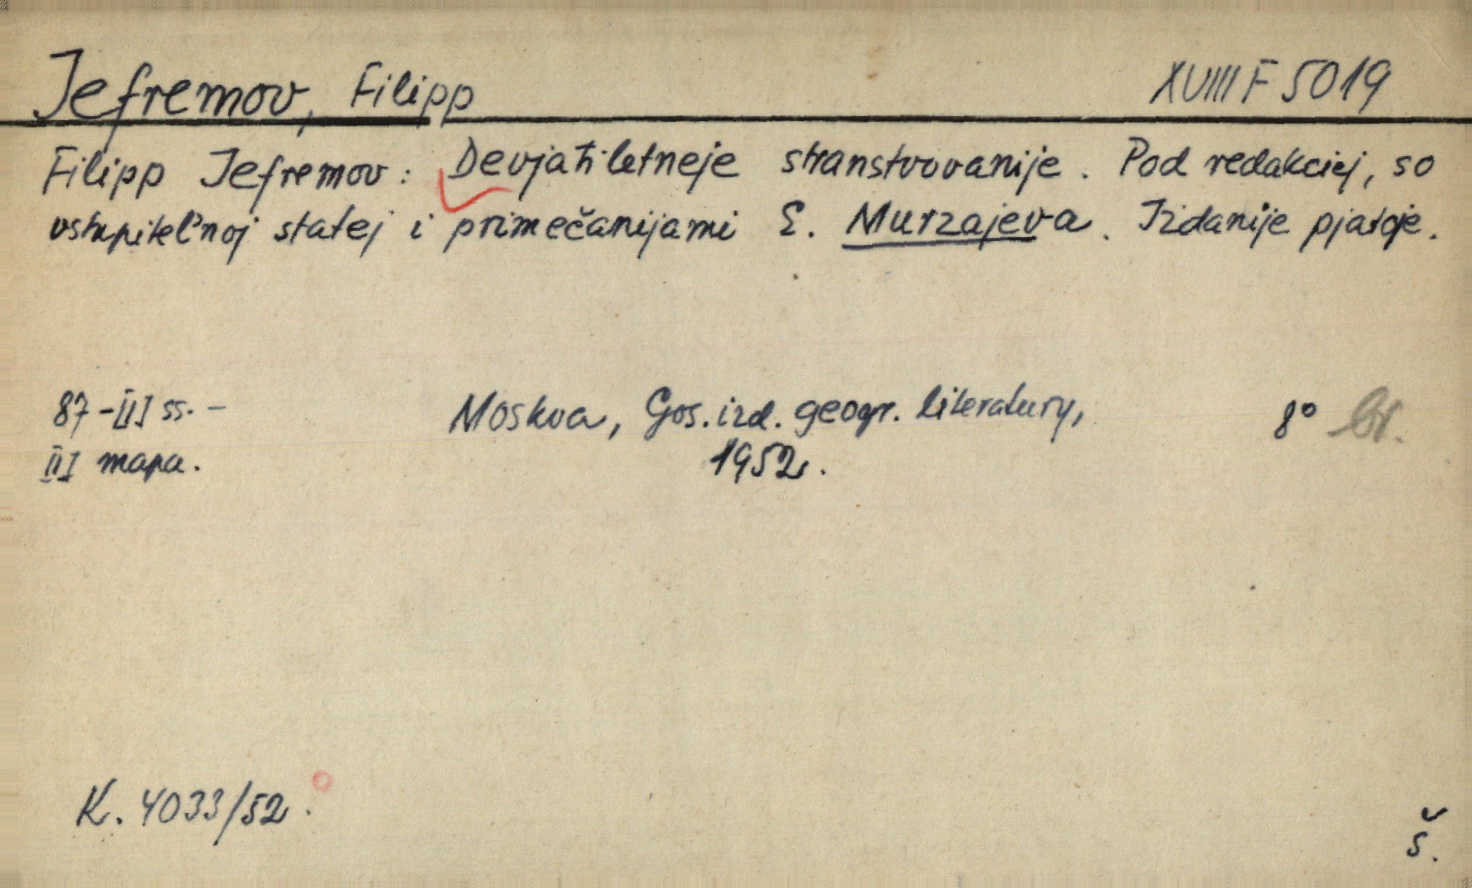 Jefremov, Filipp XVIII F 5019
Filipp Jefremov: Devjatiletneje stranstvovanije. Pod redakciej, so
vstupitel'noj statej i primečanijami E. Murzajeva. Izdanije pjatoje.
87-[I] ss. - Moskva, Gos. izd. geogr. literatury, 8° br.
[I] mapa. 1952.
K. 4033/52.
š.